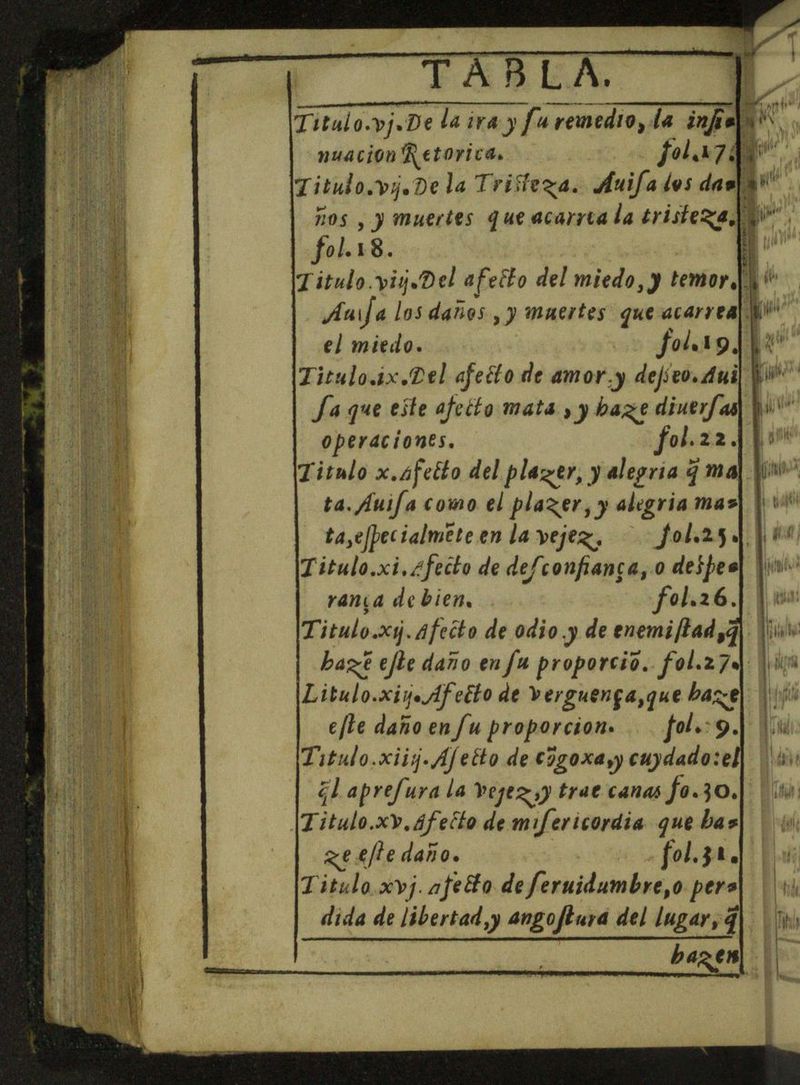 TABLA.
Titulo.vj.De la ira y ſu remedio, la inſi=
nuacion Retorica. fol.17.
Titulo.vij.De la Tristeza. Auiſa los da=
ños , y muertes que acarrea la tristeza,
fol.18.
Titulo.viij.Del afecto del miedo, y temor.
Auiſa los daños , y muertes que acarrea
el miedo. fol.19.
Titulo.ix.Del afecto de amor.y deſſeo.Aui
ſa que este afecto mata , y haze diuerſas
operaciones. fol.22.
Titulo x.Afecto del plazer, y alegria q̃ ma
ta.Auiſa como el plazer, y alegria ma=
ta,eſpecialmẽte en la vejez, fol.25.
Titulo.xi.Afecto de deſconfiança, o deſpe=
rança de bien. fol.26.
Titulo.xij.Afecto de odio.y de enemiſtad,q̃
hazẽ eſte daño en ſu proporciõ. fol.27.
Litulo.xiij.Afecto de verguença,que haze
eſte daño en ſu proporcion. fol. 9.
Titulo.xiiij.Afecto de cõgoxa,y cuydado:el
q̃l apreſura la vejez,y trae canas fo.30.
Titulo.xv.Afecto de miſericordia que ha=
ze eſte daño. fol.31.
Titulo xvj.Afecto de ſeruidumbre,o per=
dida de libertad,y angoſtura del lugar, q̃
hazen